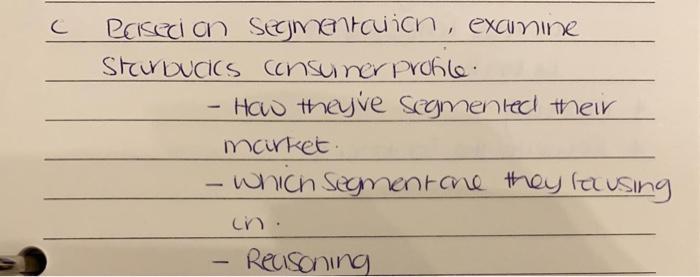 c Based on segmentation, examine
Starbucks consumer profile.
- How they've segmented their
market.
- which segment are they focusing
on.
- Reasoning